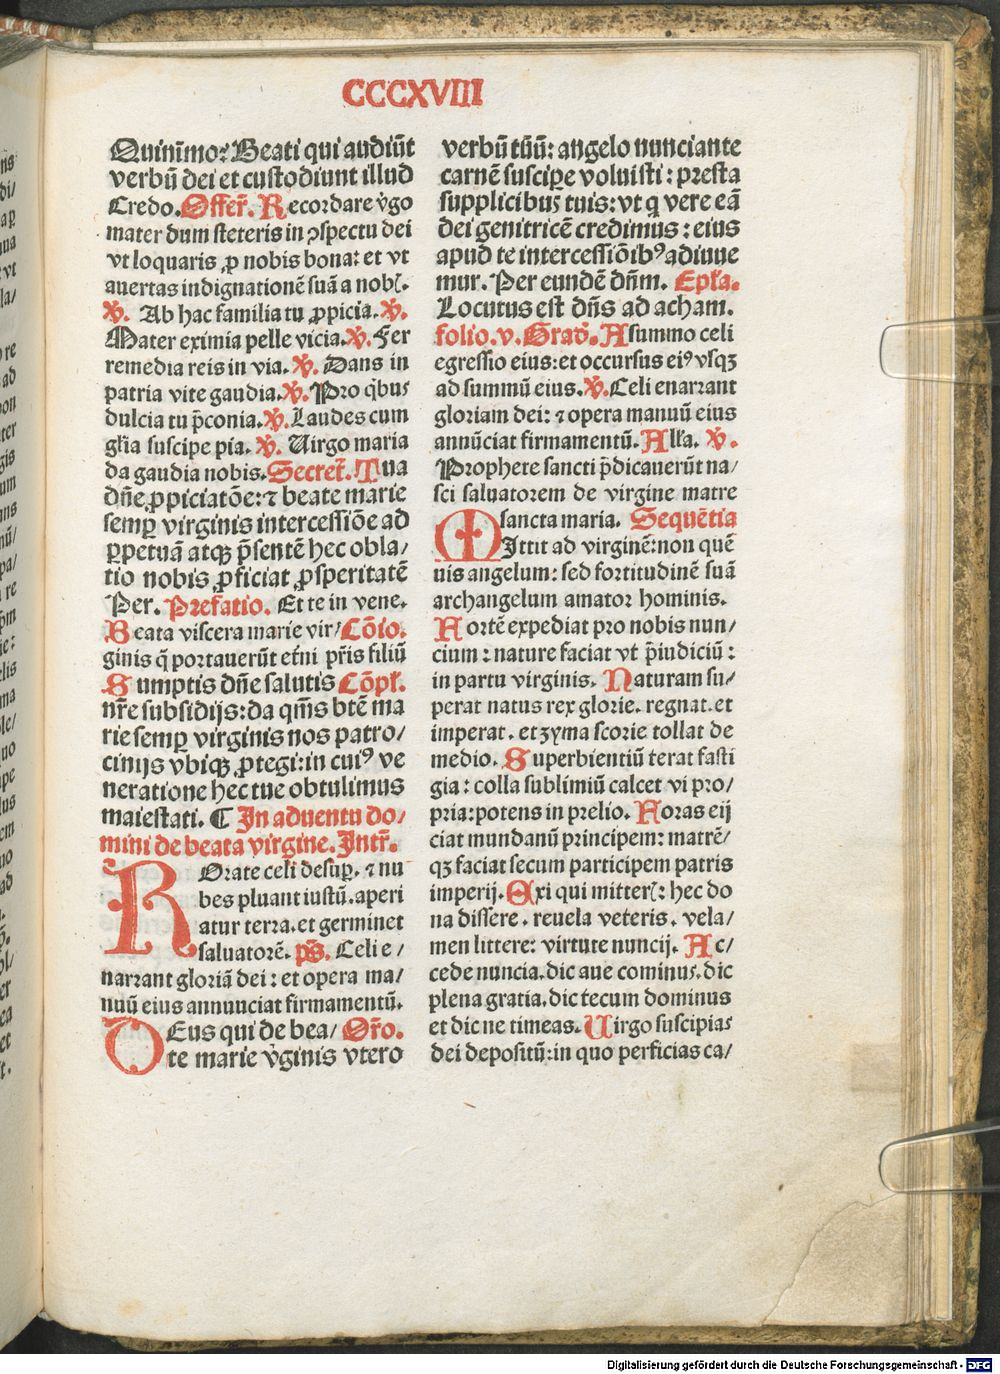 CCCXVIII
Quinim̄o? Beati qui audiūt
verbū dei et custodiunt illud
Credo. Offer̄. Recordare v̄go
mater dum steteris in ꝯspectu dei
vt loquaris ꝓ nobis bona: et vt
auertas indignationē suā a nobꝭ.
℣. Ab hac familia tu ꝓpicia. ℣.
Mater eximia pelle vicia. ℣. Fer
remedia reis in via. ℣. Dans in
patria vite gaudia. ℣. Pro q̄bus
dulcia tu p̄conia. ℣. Laudes cum
gl̄ia suscipe pia. ℣. Uirgo maria
da gaudia nobis. Secret̄. Tua
dn̄e ꝓpiciatōe: ⁊ beate marie
semꝑ virginis intercessiōe ad
ꝑpetuā atqꝫ p̄sentē hec obla/
tio nobis ꝓficiat ꝓsperitatē
Per. Prefatio. Et te in vene.
Beata viscera marie vir/ Cōio.
ginis q̄ portauerūt et̄ni pr̄is filiū
Sumptis dn̄e salutis Cōpl̄.
nr̄e subsidijs: da qm̄s bt̄e ma
rie semꝑ virginis nos patro/
cinijs vbiqꝫ ꝓtegi: in cuiꝰ ve
neratione hec tue obtulimus
maiestati. ¶ In aduentu do/
mini de beata virgine. Intr̄.
ROrate celi desuꝑ. ⁊ nu
bes pluant iustū. aperi
atur terra. et germinet
saluatorē. ps̄. Celi e/
narrant gloriā dei: et opera ma/
nuū eius annunciat firmamentū.
DEus qui de bea/ Or̄o.
te marie v̄ginis vtero
verbū tuū: angelo nunciante
carnē suscipe voluisti: presta
supplicibus tuis: vt q vere eā
dei genitricē credimus: eius
apud te intercessiōibꝰ adiuue
mur. Per eundē dn̄m. Epl̄a.
Locutus est dn̄s ad acham.
folio. v. Grad̄. A summo celi
egressio eius: et occursus eiꝰ vsqꝫ
ad summū eius. ℣. Celi enarrant
gloriam dei: ⁊ opera manuū eius
annūciat firmamentū. All̄a. ℣.
Prophete sancti p̄dicauerūt na/
sci saluatorem de virgine matre
sancta maria. Sequētia
MIttit ad virginē: non quē
uis angelum: sed fortitudinē suā
archangelum amator hominis.
Fortē expediat pro nobis nun/
cium: nature faciat vt p̄iudiciū:
in partu virginis. Naturam su/
perat natus rex glorie. regnat. et
imperat. et zyma scorie tollat de
medio. Superbientiū terat fasti
gia: colla sublimiū calcet vi pro/
pria: potens in prelio. Foras eij
ciat mundanū principem: matrē/
qꝫ faciat secum participem patris
imperij. Exi qui mitterꝭ: hec do
na dissere. reuela veteris. vela/
men littere: virtute nuncij. Ac/
cede nuncia. dic aue cominus. dic
plena gratia. dic tecum dominus
et dic ne timeas. Uirgo suscipias
dei depositū: in quo perficias ca/
Digitalisierung gefördert durch die Deutsche Forschungsgemeinschaft - DFG